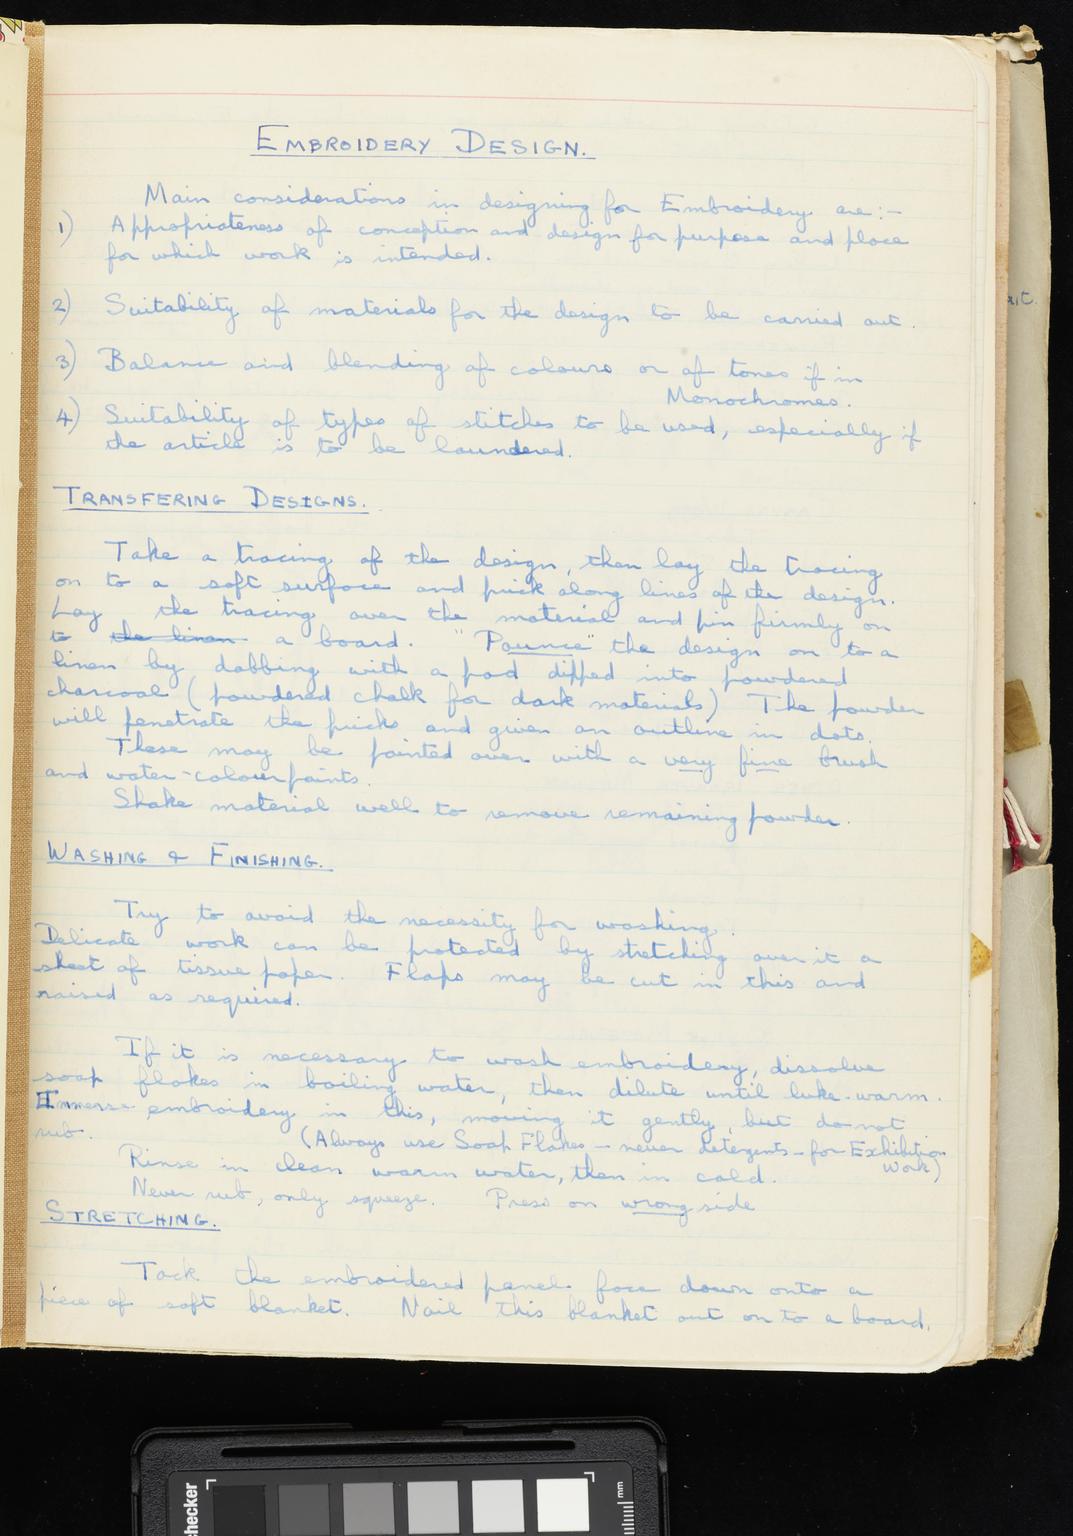 EMBROIDERY DESIGN.
Main considerations in designing for Embroidery are:-
1) Appropriateness of conception and design for purpose and place
for which work is intended.
2) Suitability of materials for the design to be carried out.
3) Balance and blending of colours or of tones if in
Monochromes.
4) Suitability of types of stitches to be used, especially if
the article is to be laundered.
TRANSFERING DESIGNS.
Take a tracing of the design, then lay the tracing
on to a soft surface and prick along lines of the design.
Lay the tracing over the material and pin firmly on
to the linen a board. "Pounce" the design on to a
linen by dabbing with a pad dipped into powdered
charcoal (powdered chalk for dark materials) The powder
will penetrate the pricks and given an outline in dots.
These may be painted over with a very fine brush
and water-colour paints.
Shake material well to remove remaining powder.
WASHING & FINISHING.
Try to avoid the necessity for washing.
Delicate work can be protected by stretching over it a
sheet of tissue paper. Flaps may be cut in this and
raised as required.
If it is necessary to wash embroidery, dissolve
soap flakes in boiling water, then dilute until luke-warm.
Immerse embroidery in this, moving it gently, but do not
rub. (Always use Soap Flakes - never detergents - for Exhibition
Work)
Rinse in clean warm water, then in cold.
Never rub, only squeeze. Press on wrong side
STRETCHING.
Tack the embroidered panel face down onto a
piece of soft blanket. Nail this blanket out on to a board.
checker
mm